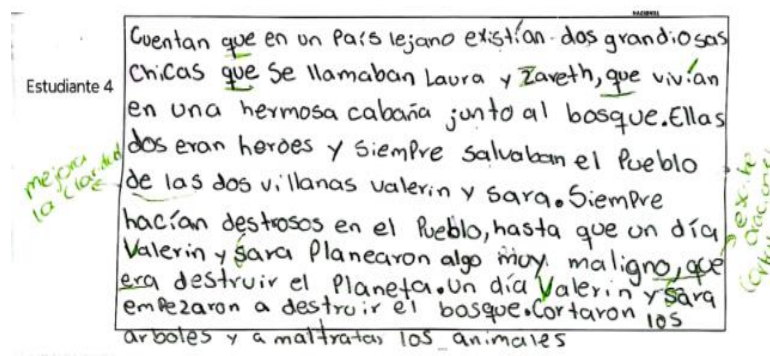 NACIONAL
Estudiante 4
Cuentan que en un País lejano existían dos grandiosas
chicas que se llamaban Laura y Zareth, que vivían
en una hermosa cabaña junto al bosque. Ellas
dos eran heroes y siempre salvaban el Pueblo
de las dos villanas valerin y sara. Siempre
hacían destrosos en el Pueblo, hasta que un día
Valerin y sara Planearon algo muy maligno, que
era destruir el Planeta. Un día Valerin y Sara
empezaron a destruir el bosque. Cortaron los
arboles y a maltratar los animales
mejora
la claridad